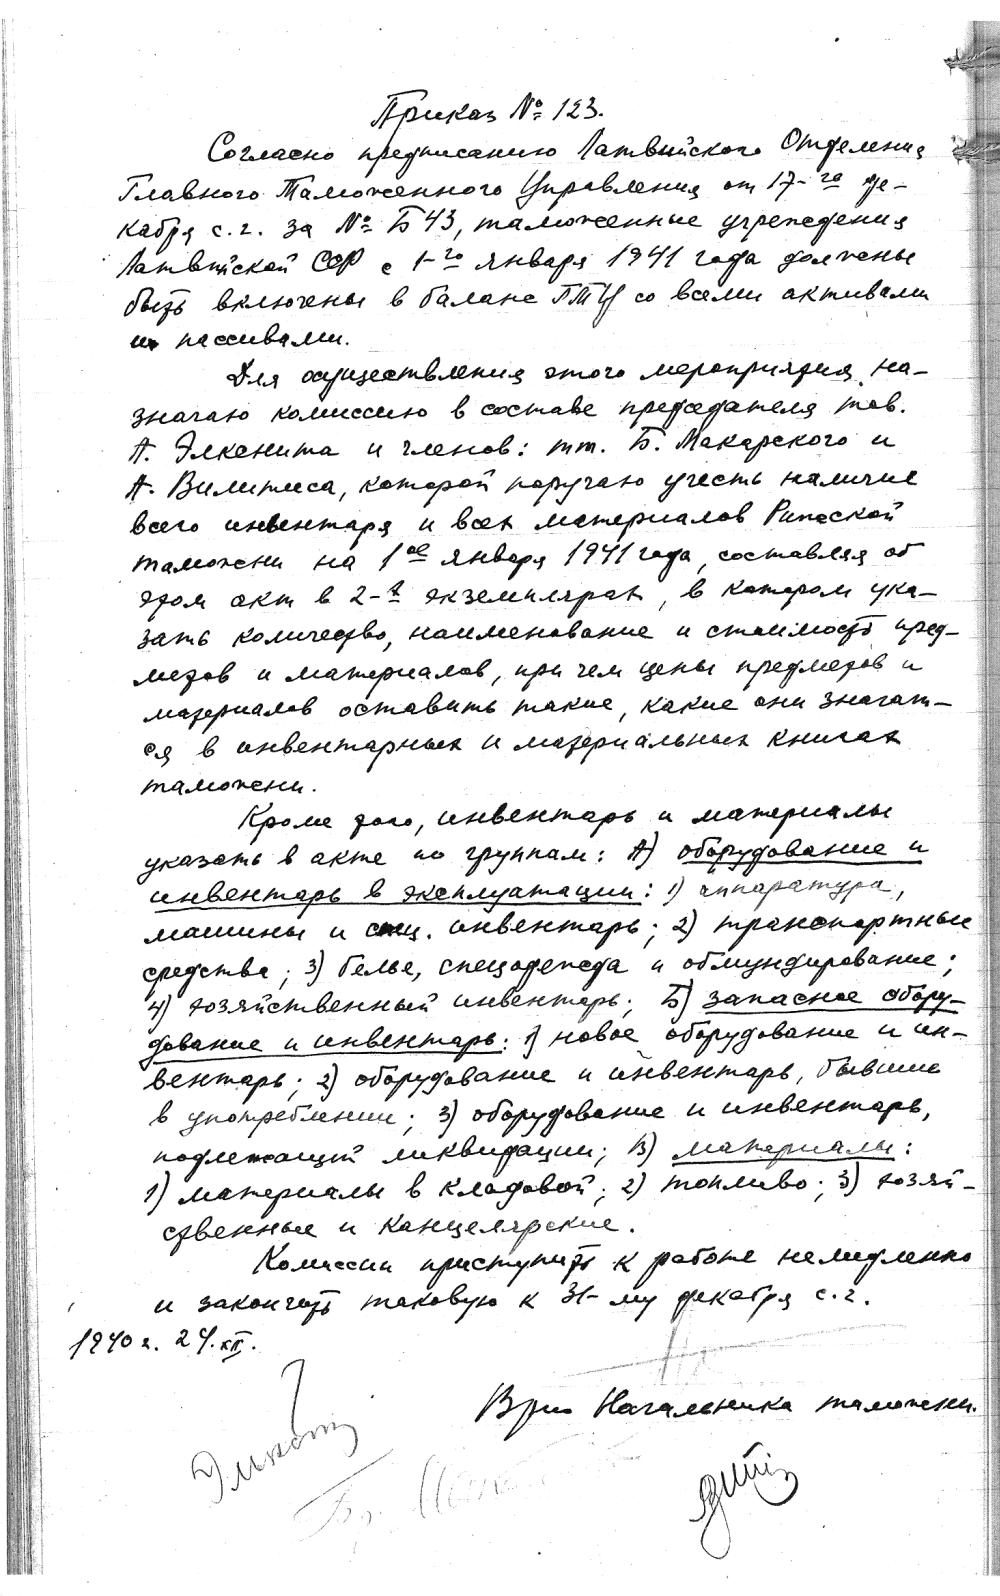 Приказ № 123.
Согласно предписанию Латвийского Отделения
Главного Таможенного Управления от 17-го де-
кабря с.г. за № Б43, таможенные учреждения
Латвийской ССР с 1-го января 1941 года должены
быть включены в баланс ГТУ со всеми активами
и пассивами.
Для осуществления этого мероприятия, на-
значаю комиссию в составе председателя тов.
А. Элкснита и членов: тт. Б. Макарского и
А. Вилитиса, которой поручаю учесть наличие
всего инвентаря и всех материалов Рижской
таможни на 1ое января 1941 года, составляя об
этом акт в 2-х экземплярах, в котором ука-
зать количество, наименование и стоимость пред-
метов и материалов, при чем цены предметов и
материалов оставить такие, какие они значат-
ся в инвентарных и материальных книгах
таможни.
Кроме того, инвентарь и материалы
указать в акте по группам: А) оборудование и
инвентарь в эксплуатации: 1) аппаратура,
машины и спец. инвентарь; 2) транспортные
средства; 3) белье, спецодежда и обмундирование;
4) хозяйственный инвентарь; Б) запасное обору-
дование и инвентарь: 1) новое оборудование и ин-
вентарь; 2) оборудование и инвентарь, бывшие
в употреблении; 3) оборудование и инвентарь,
подлежащий ликвидации; В) материалы:
1) материалы в кладовой; 2) топливо; 3) хозяй-
ственные и канцелярские.
Комиссии приступить к работе немедленно
и закончить таковую к 31-му декабря с.г.
1940 г. 24.XII.
Врио Начальника таможни.